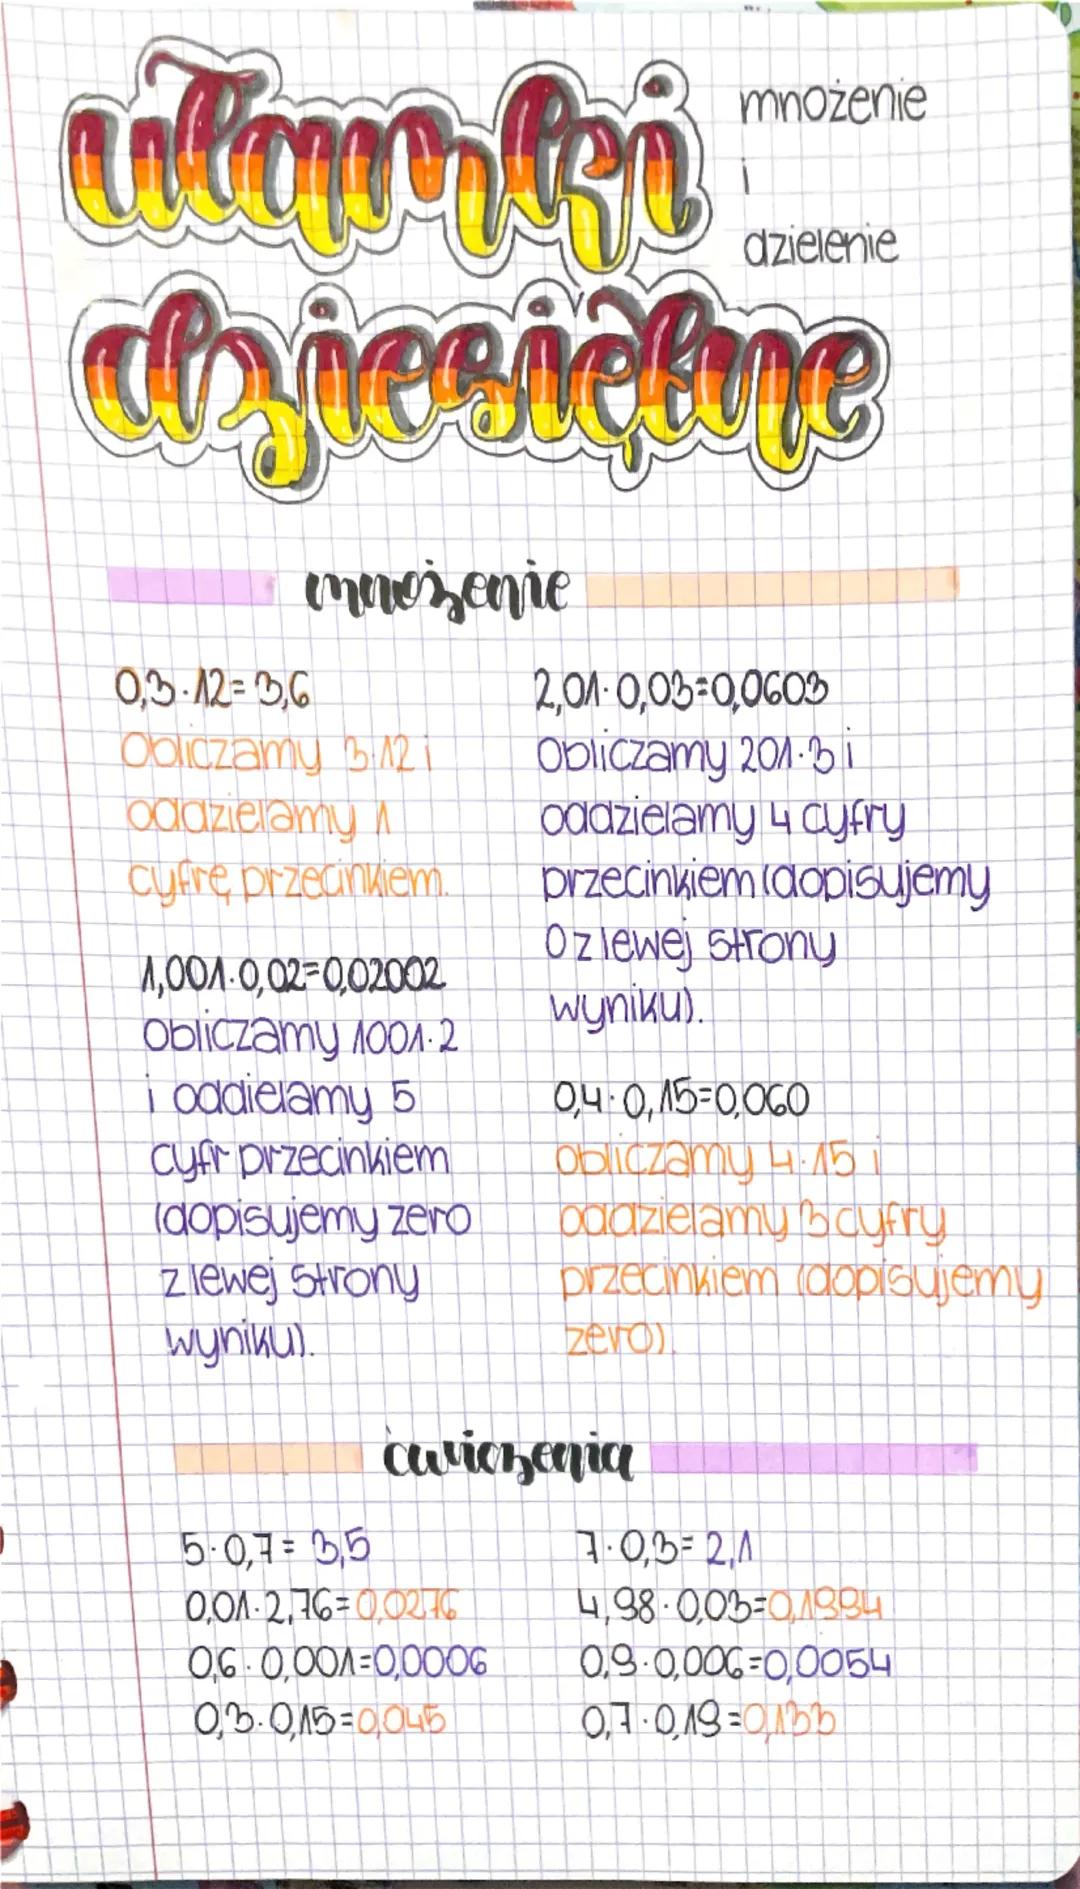 ułamki
dziesiętne
mnożenie
i
dzielenie
mnożenie
0,3·12=3,6
Obliczamy 3·12 i
oddzielamy 1
cyfrę przecinkiem.
1,001·0,02=0,02002
Obliczamy 1001·2
i oddielamy 5
cyfr przecinkiem
(dopisujemy zero
z lewej strony
wyniku).
2,01·0,03=0,0603
Obliczamy 201·3 i
oddzielamy 4 cyfry
przecinkiem (dopisujemy
0 z lewej strony
wyniku).
0,4·0,15=0,060
obliczamy 4·15 i
oddzielamy 3 cyfry
przecinkiem (dopisujemy
zero).
ćwiczenia
5·0,7=3,5
0,01·2,76=0,0276
0,6·0,001=0,0006
0,3·0,15=0,045
7·0,3=2,1
4,98·0,03=0,1994
0,9·0,006=0,0054
0,7·0,19=0,133